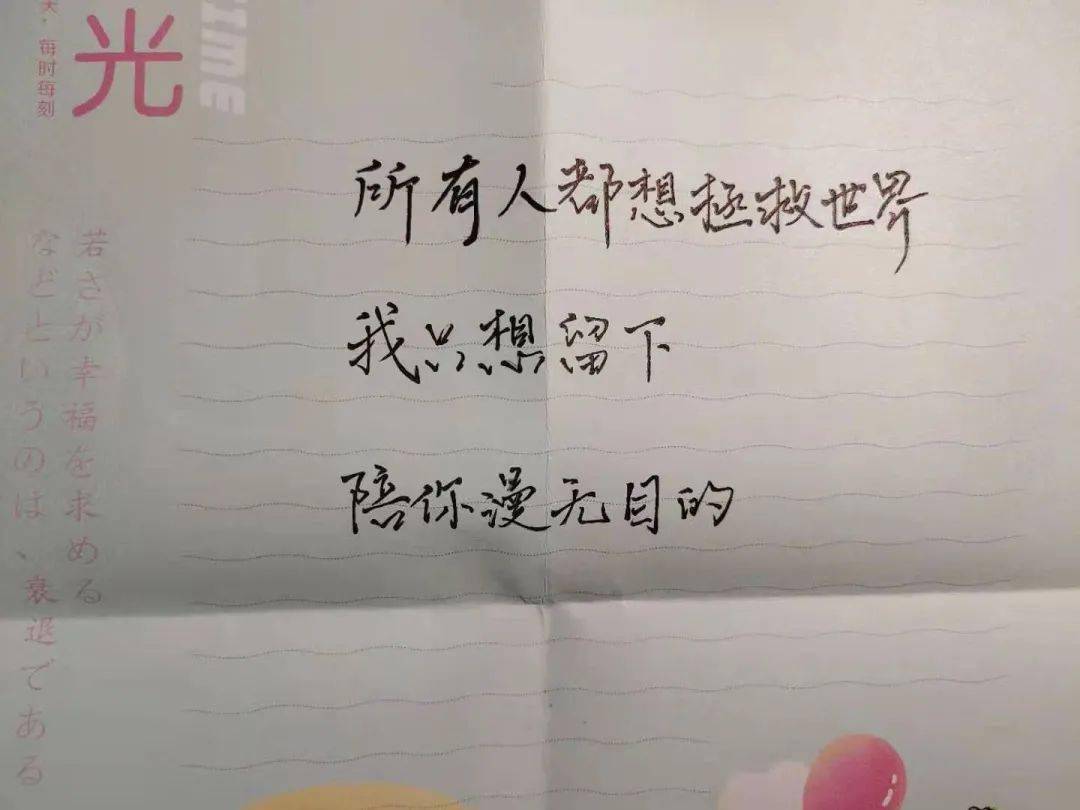 光
TIME
天·每时每刻
所有人都想拯救世界
我只想留下
陪你漫无目的
若さが幸福を求める
などというのは、衰退である